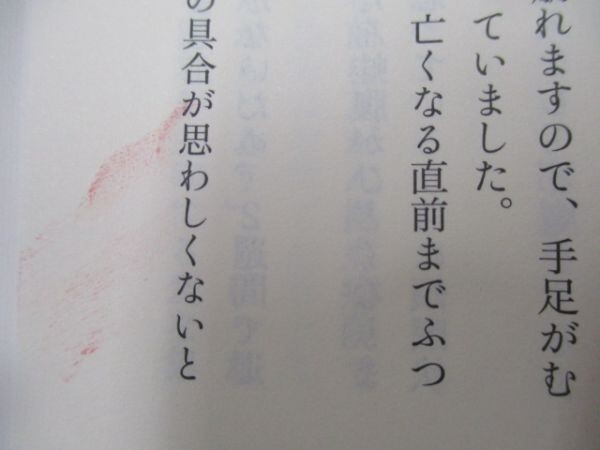 れますので、手足がむ
ていました。
亡くなる直前までふつ
の具合が思わしくないと